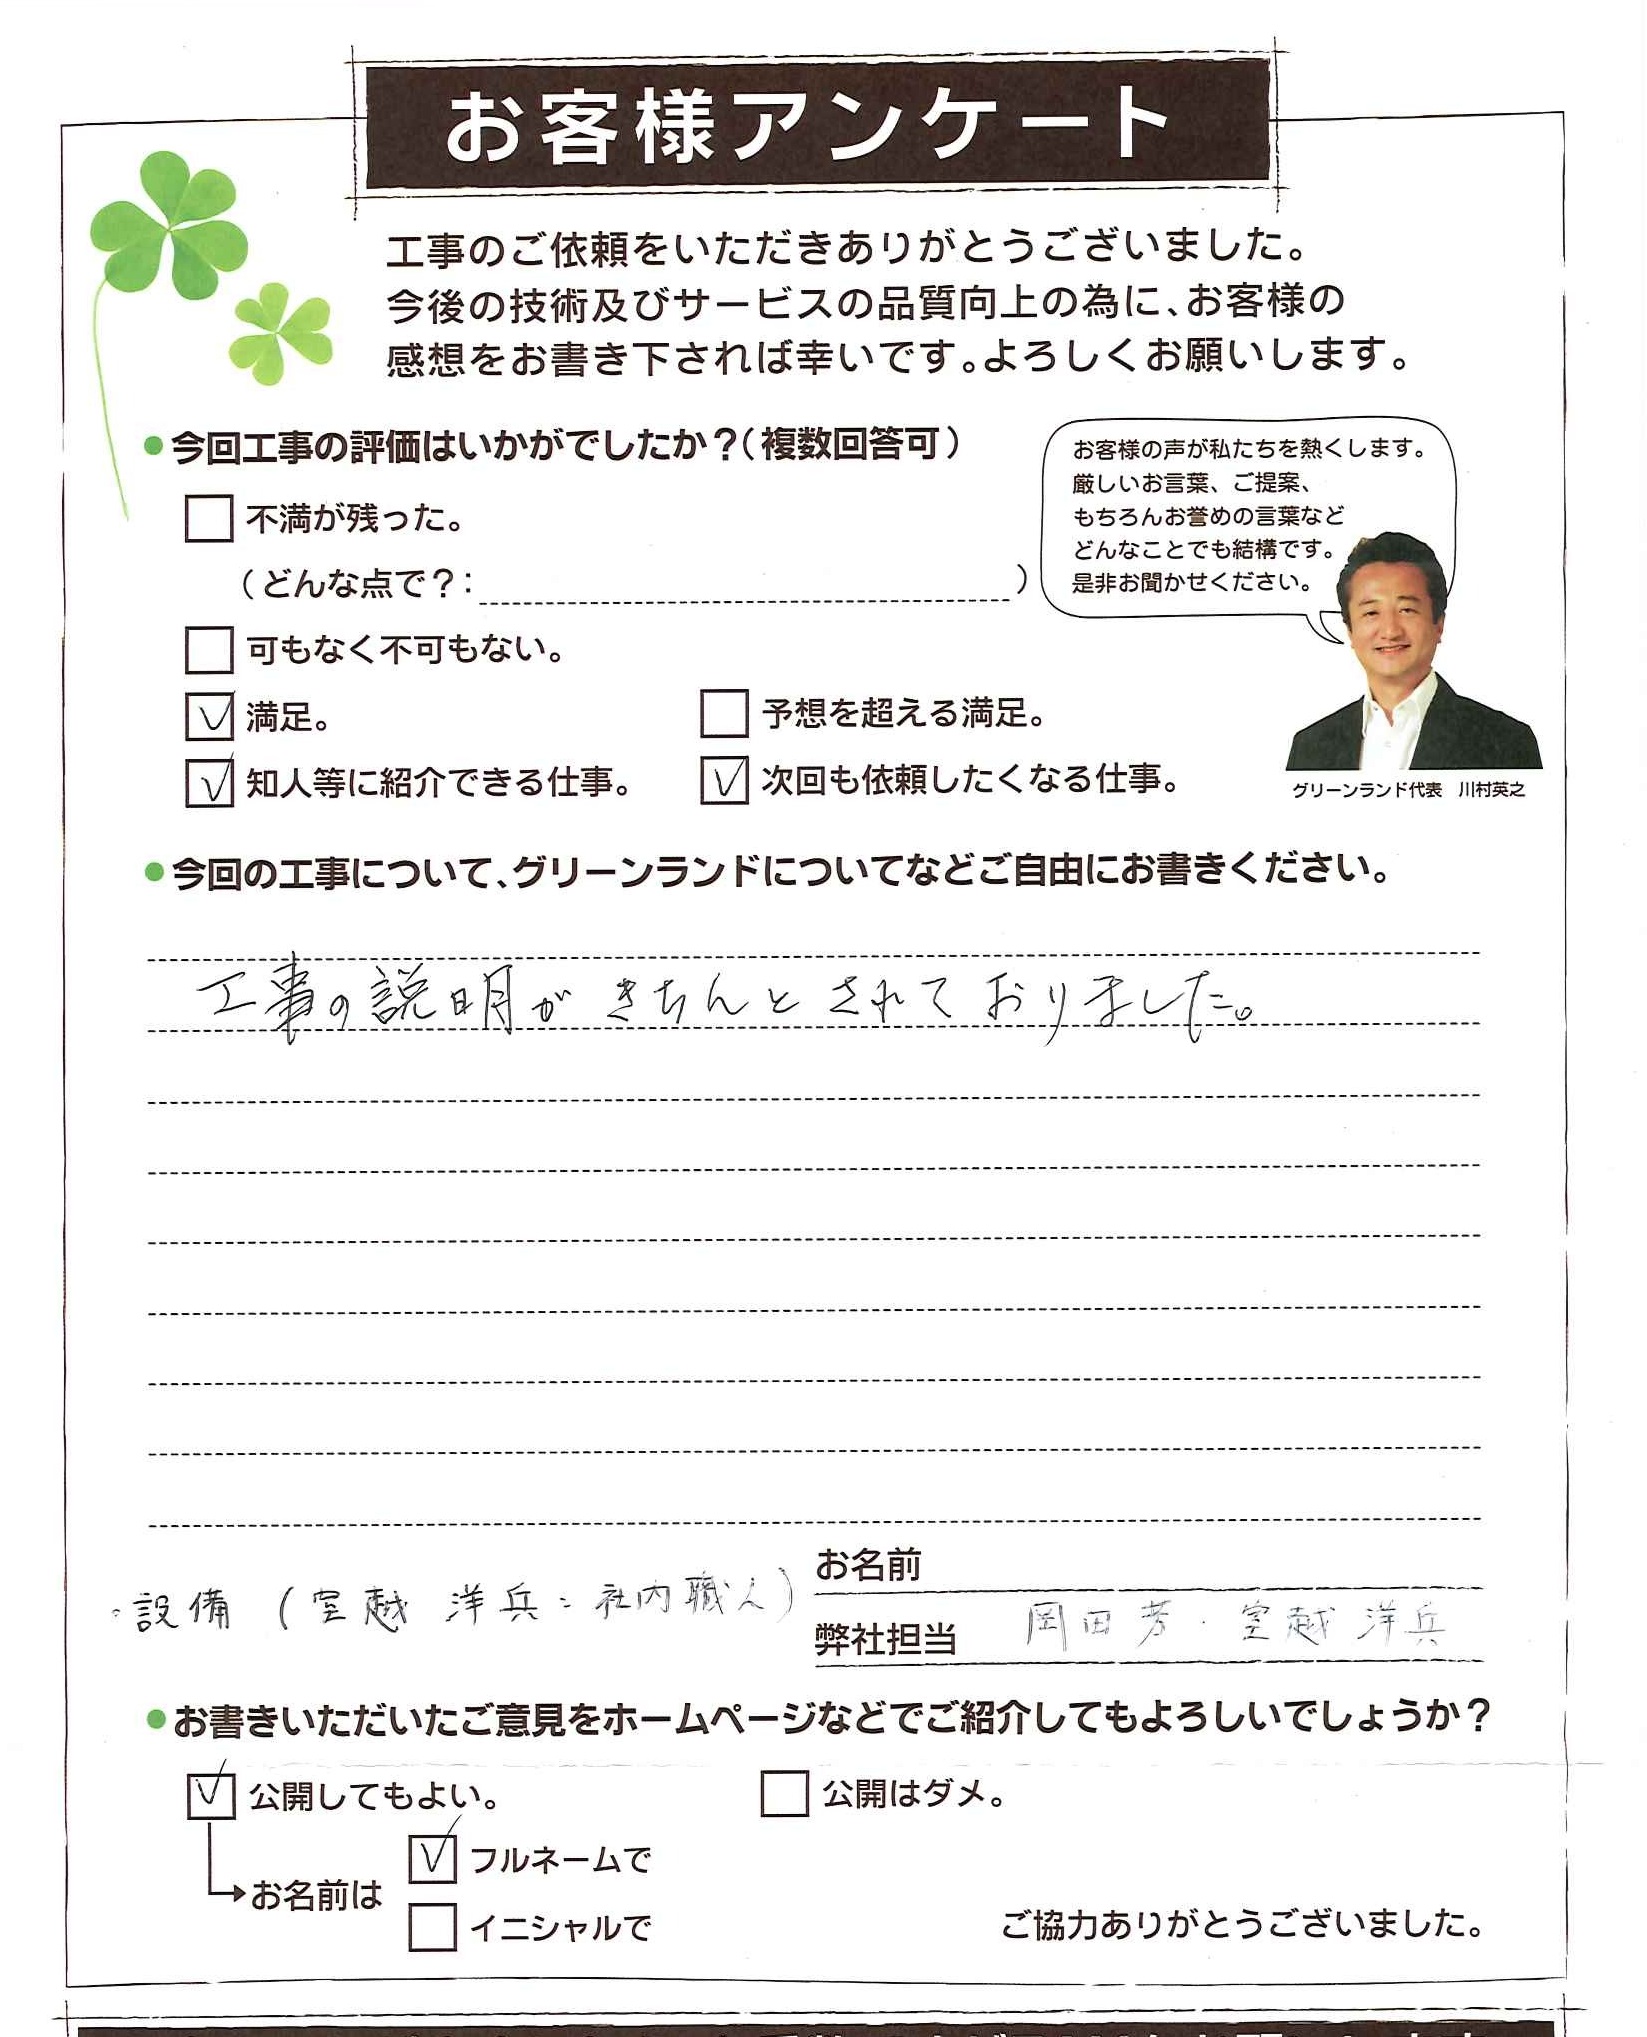 お客様アンケート
工事のご依頼をいただきありがとうございました。
今後の技術及びサービスの品質向上の為に、お客様の
感想をお書き下されば幸いです。よろしくお願いします。
●今回工事の評価はいかがでしたか？(複数回答可)
□不満が残った。
(どんな点で？: )
□可もなく不可もない。
☑満足。 □予想を超える満足。
☑知人等に紹介できる仕事。 ☑次回も依頼したくなる仕事。
お客様の声が私たちを熱くします。
厳しいお言葉、ご提案、
もちろんお誉めの言葉など
どんなことでも結構です。
是非お聞かせください。
グリーンランド代表 川村英之
●今回の工事について、グリーンランドについてなどご自由にお書きください。
工事の説明がきちんとされておりました。
お名前
・設備 (室越 洋兵:社内職人)
弊社担当 岡田芳・室越洋兵
●お書きいただいたご意見をホームページなどでご紹介してもよろしいでしょうか？
☑公開してもよい。 □公開はダメ。
☑フルネームで
お名前は
□イニシャルで
ご協力ありがとうございました。